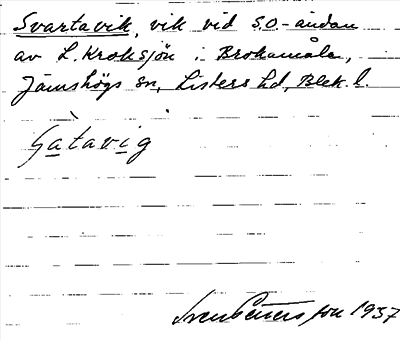 Svartavik, vik vid S.O.-ändan
av L. Kroksjön i Brokamåla,
Jämshögs sn, Listers hd, Blek. l.
Gàtavig
Sven Petersson 1937